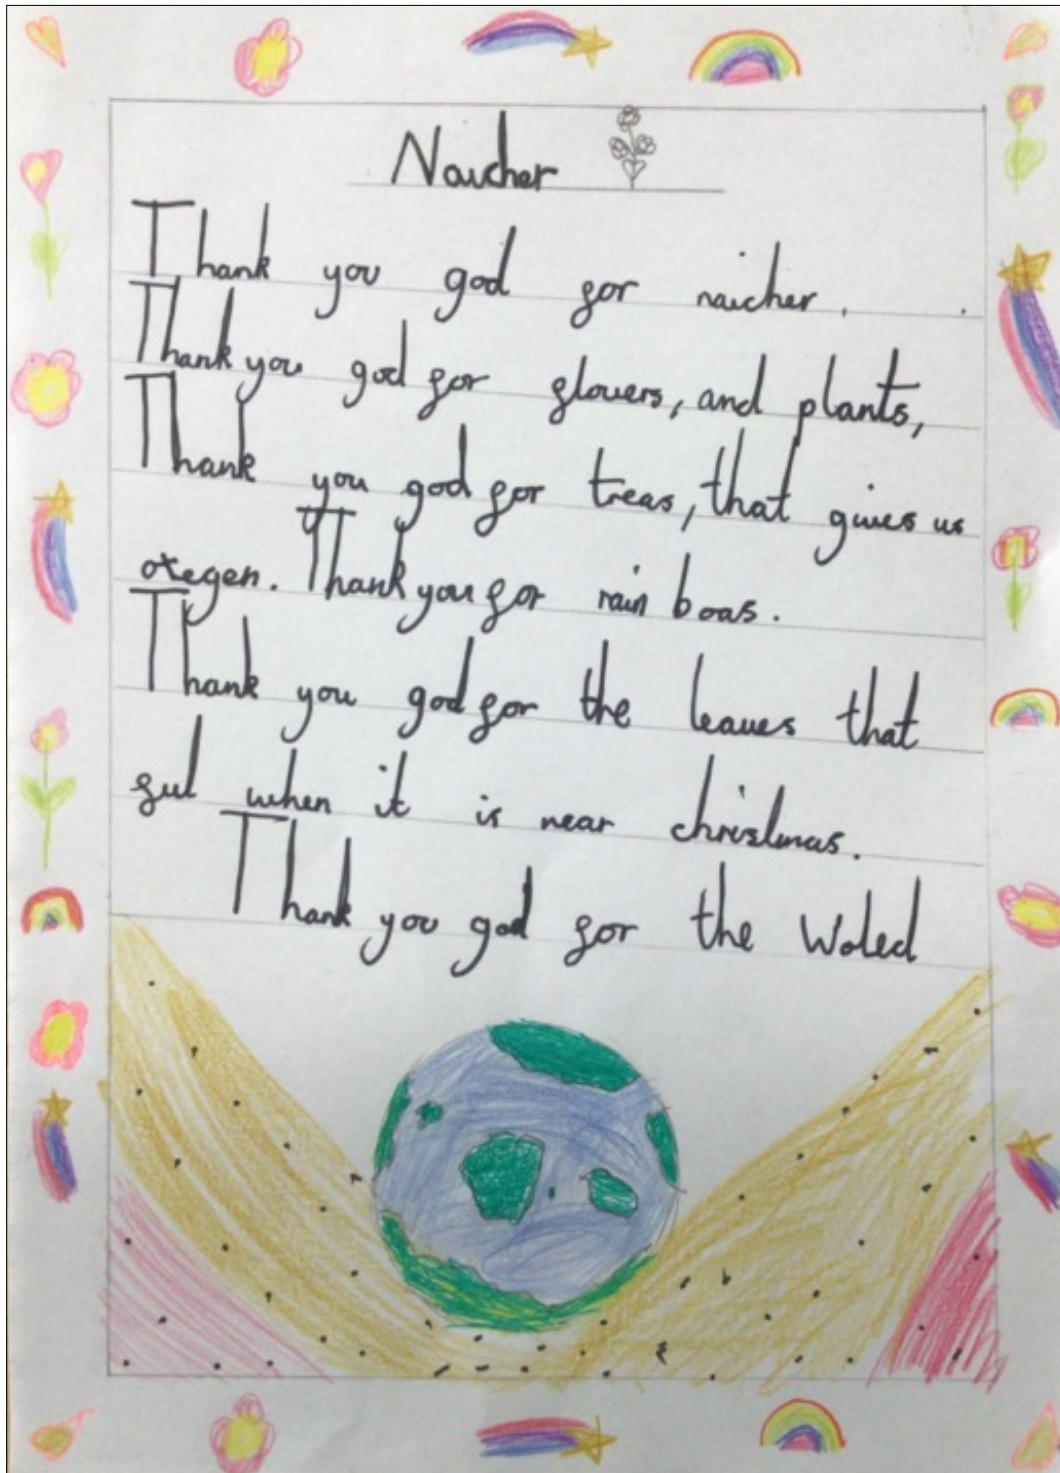 Naicher
Thank you god for naicher.
Thank you god for flowers, and plants,
Thank you god for treas, that gives us
oxegen. Thank you for rain boas.
Thank you god for the leaves that
ful when it is near christmas.
Thank you god for the woled